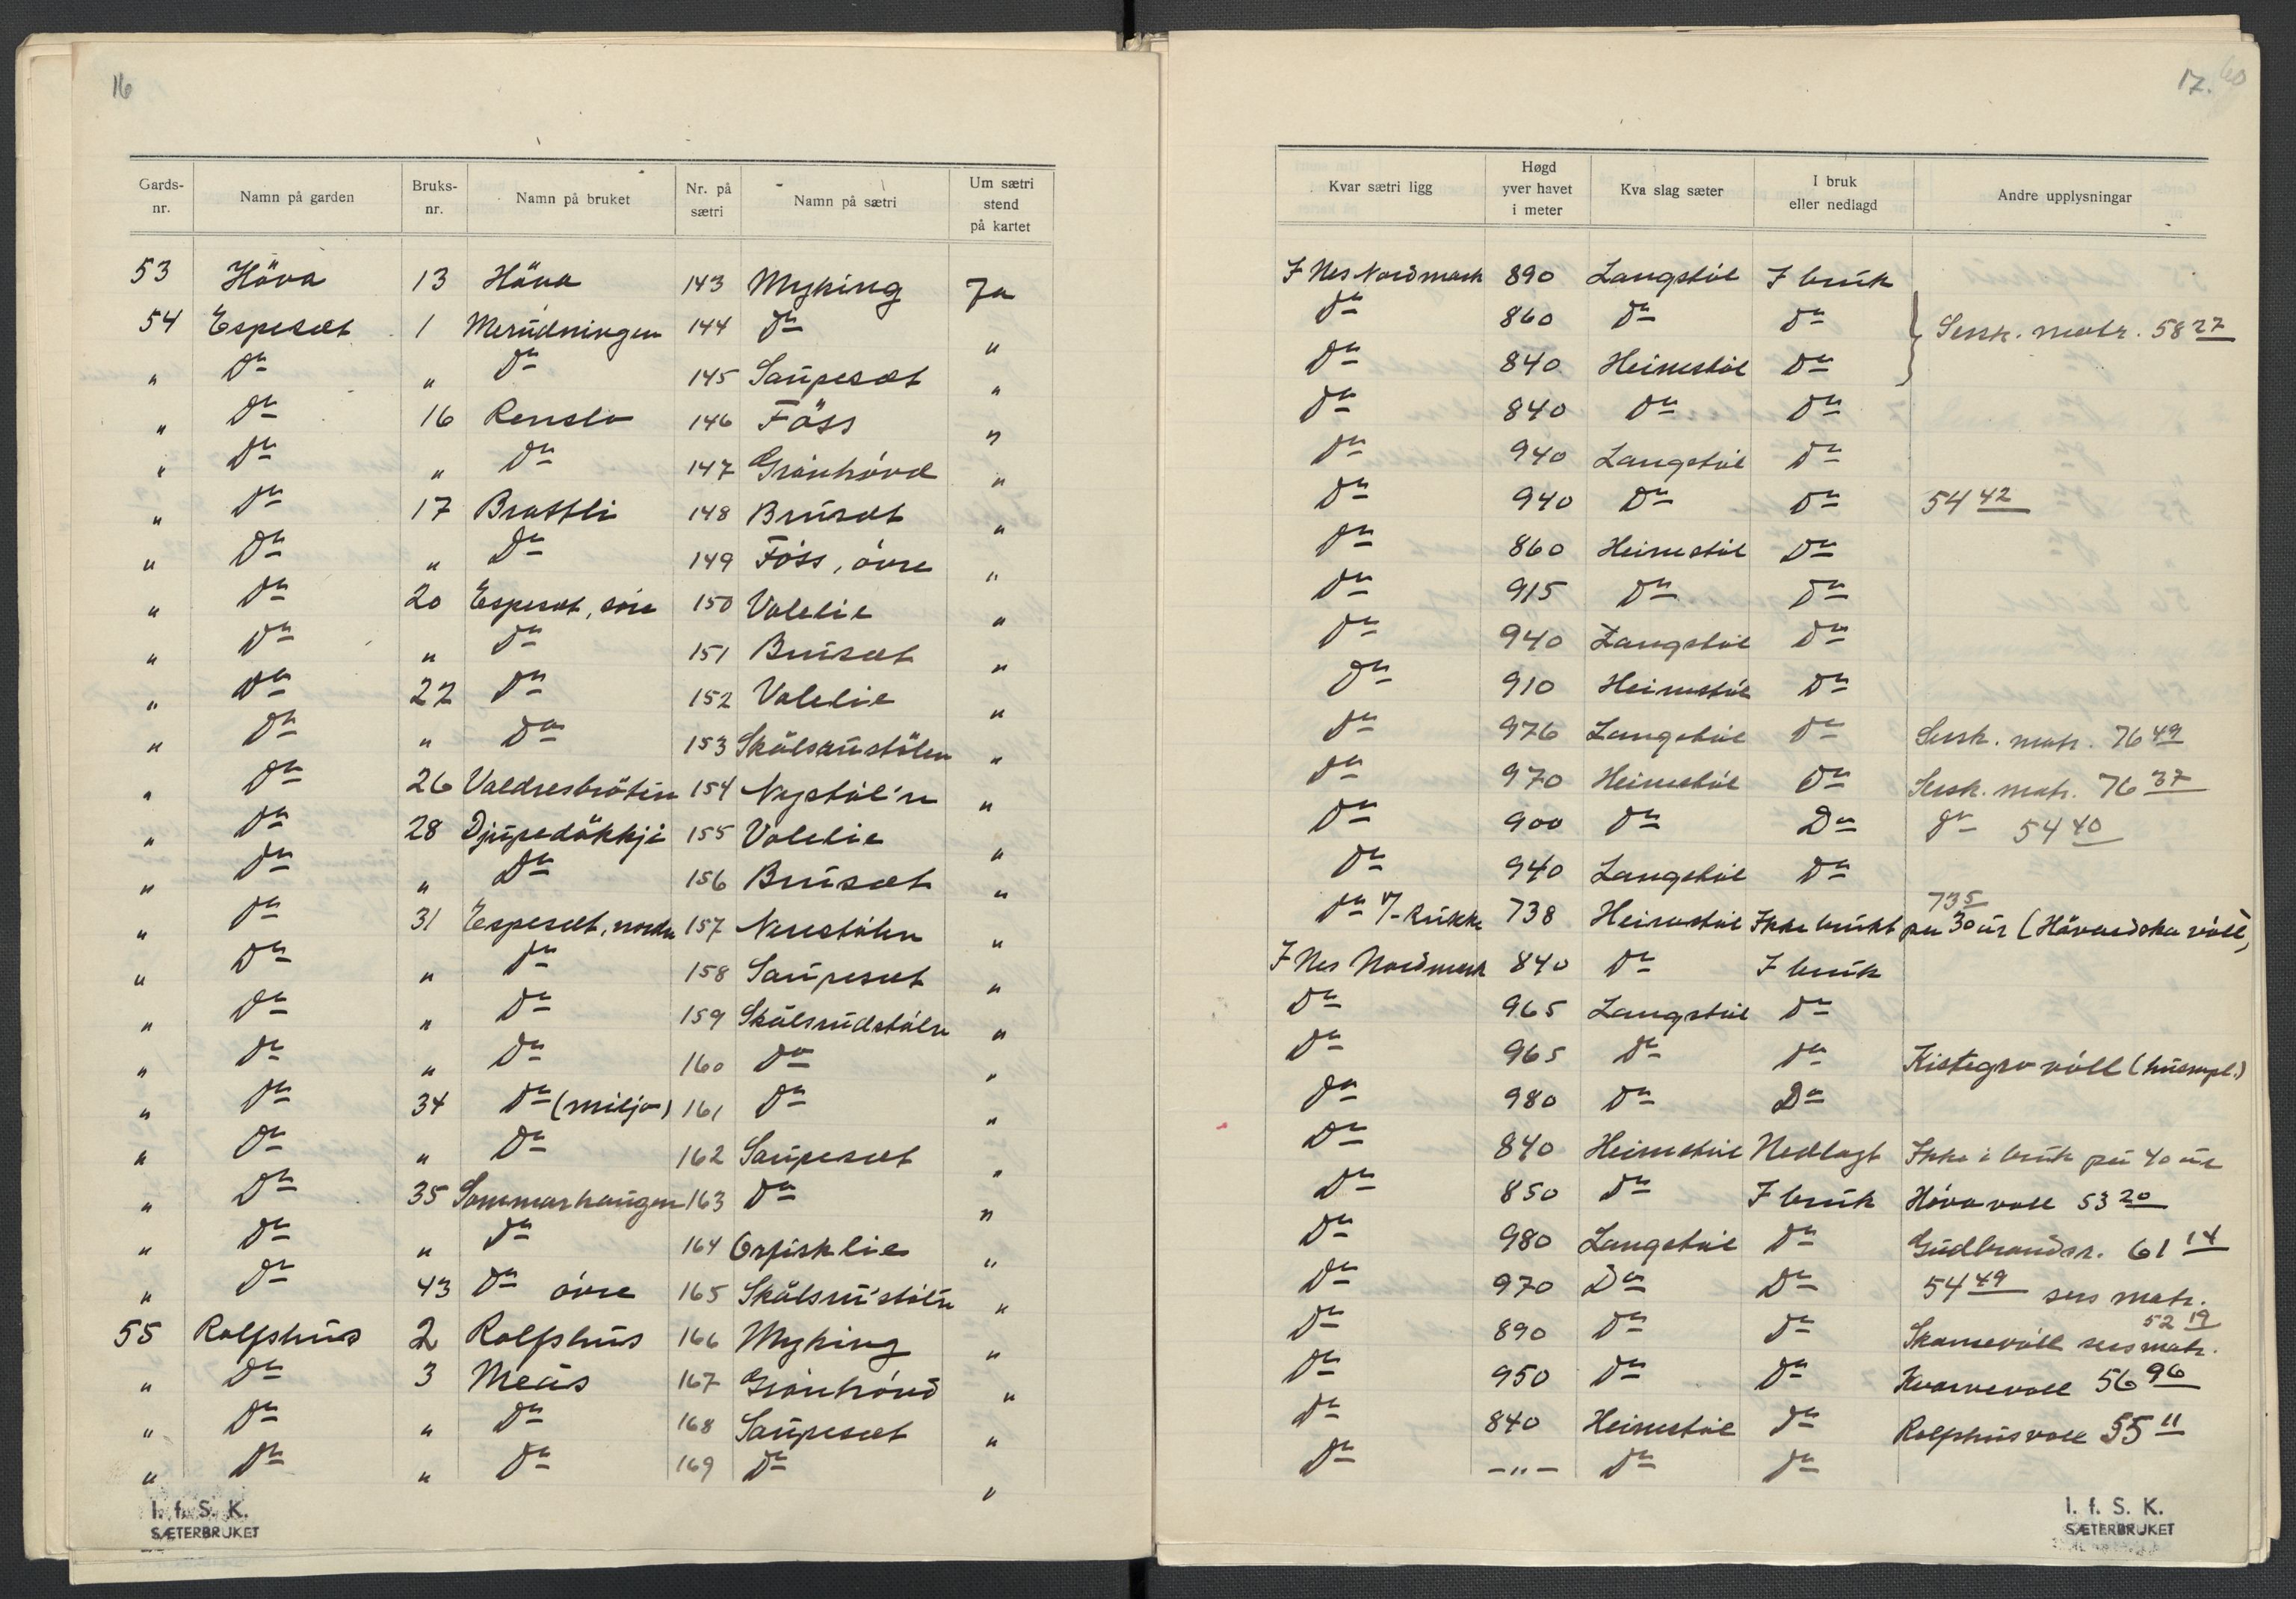 16
Gards-nr. | Namn på garden | Bruks-nr. | Namn på bruket | Nr. på sætri | Namn på sætri | Um sætri stend på kartet
53 Höva 13 Höva 143 Myking Ja
54 Espeset 1 Merudningen 144 Do "
" Do " Do 145 Saupeset "
" Do 16 Renslo 146 Föss "
" Do " Do 147 Grönhövd "
" Do 17 Brattli 148 Bruset "
" Do " Do 149 Föss, övre "
" Do 20 Espeset, söre 150 Valelie "
" Do " Do 151 Bruset "
" Do 22 Do 152 Valelie "
" Do " Do 153 Skålsrustölen "
" Do 26 Valdresbråten 154 Nystöl'n "
" Do 28 Djupedökkji 155 Valelie "
" Do " Do 156 Bruset "
" Do 31 Espeset, nordre 157 Nerestölen "
" Do " Do 158 Saupeset "
" Do " Do 159 Skålsrudstölen "
" Do " Do 160 Do "
" Do 34 Do (miljo) 161 Do "
" Do " Do 162 Saupeset "
" Do 35 Sommarhaugen 163 Do "
" Do " Do 164 Örfisklie "
" Do 43 Do övre 165 Skålsru'stölen "
55 Rolfshus 2 Rolfshus 166 Myking "
" Do 3 Meås 167 Grönhövd "
" Do " Do 168 Saupeset "
" Do " Do 169 Do "
I. f. S. K.
SÆTERBRUKET
17. 60
Kvar sætri ligg | Høgd yver havet i meter | Kva slag sæter | I bruk eller nedlagd | Andre upplysningar
I Nes Nordmark 890 Langstöl I bruk
Do 860 Do Do } Sersk. matr. 58 27
Do 840 Heimestöl Do
Do 840 Do Do
Do 940 Langstöl Do
Do 940 Do Do 54 42
Do 860 Heimestöl Do
Do 915 Do Do
Do 940 Langstöl Do
Do 910 Heimestöl Do
Do 976 Langstöl Do Sersk. matr. 76 49
Do 970 Heimestöl Do Sersk. matr. 76 37
Do 900 Do Do Do 54 40
Do 940 Langstöl Do
735
Do 738 Heimestöl Ikke brukt på 30 år (Hövardska völl)
I Nes Nordmark 840 Do I bruk
Do 965 Langstöl Do
Do 965 Do Do Kistegro völl (husmpl.)
Do 980 Do Do
Do 840 Heimestöl Nedlagt Ikke i bruk på 40 år
Do 850 Do I bruk Hövavoll 53 20
Do 980 Langstöl Do Gudbrandsr. 61 14
Do 970 Do Do 54 49 sers matr.
52 19
Do 890 Do Do sers matr.
Do 950 Do Do Kvarnevoll 56 96
Do 840 Heimestöl Do Rolfshusvoll 55 11
Do -"- Do Do
I. f. S. K.
SÆTERBRUKET